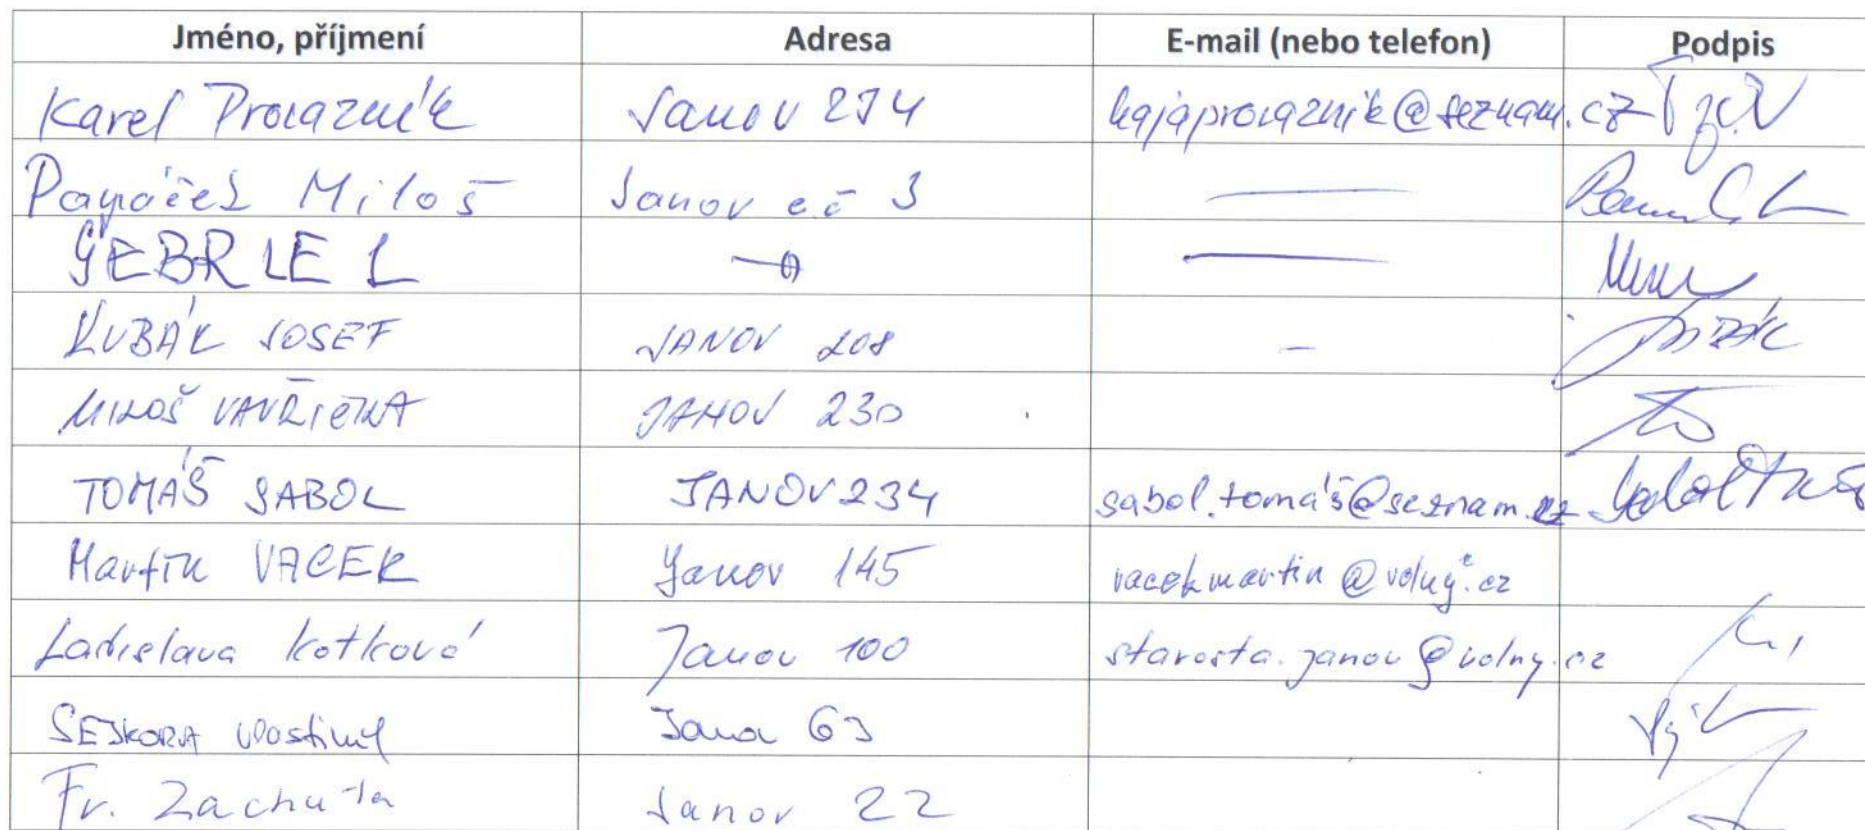 Jméno, příjmení Adresa E-mail (nebo telefon) Podpis
Karel Procazník Janov 274 kajaprocaznik@seznam.cz
Miloš Janov e.č 3
GEBRLE L
KUBÁK JOSEF JANOV 208 -
MILOŠ VAVŘIČKA JANOV 230
TOMÁŠ SABOL JANOV 234 sabol.tomáš@seznam.cz
Martin VACEK Janov 145 vacekmartin@volný.cz
Ladislava Kotková Janov 100 starosta.janov@volny.cz
SEJKORA Vlastimil Jana 63
Fr. Zachuta Janov 22